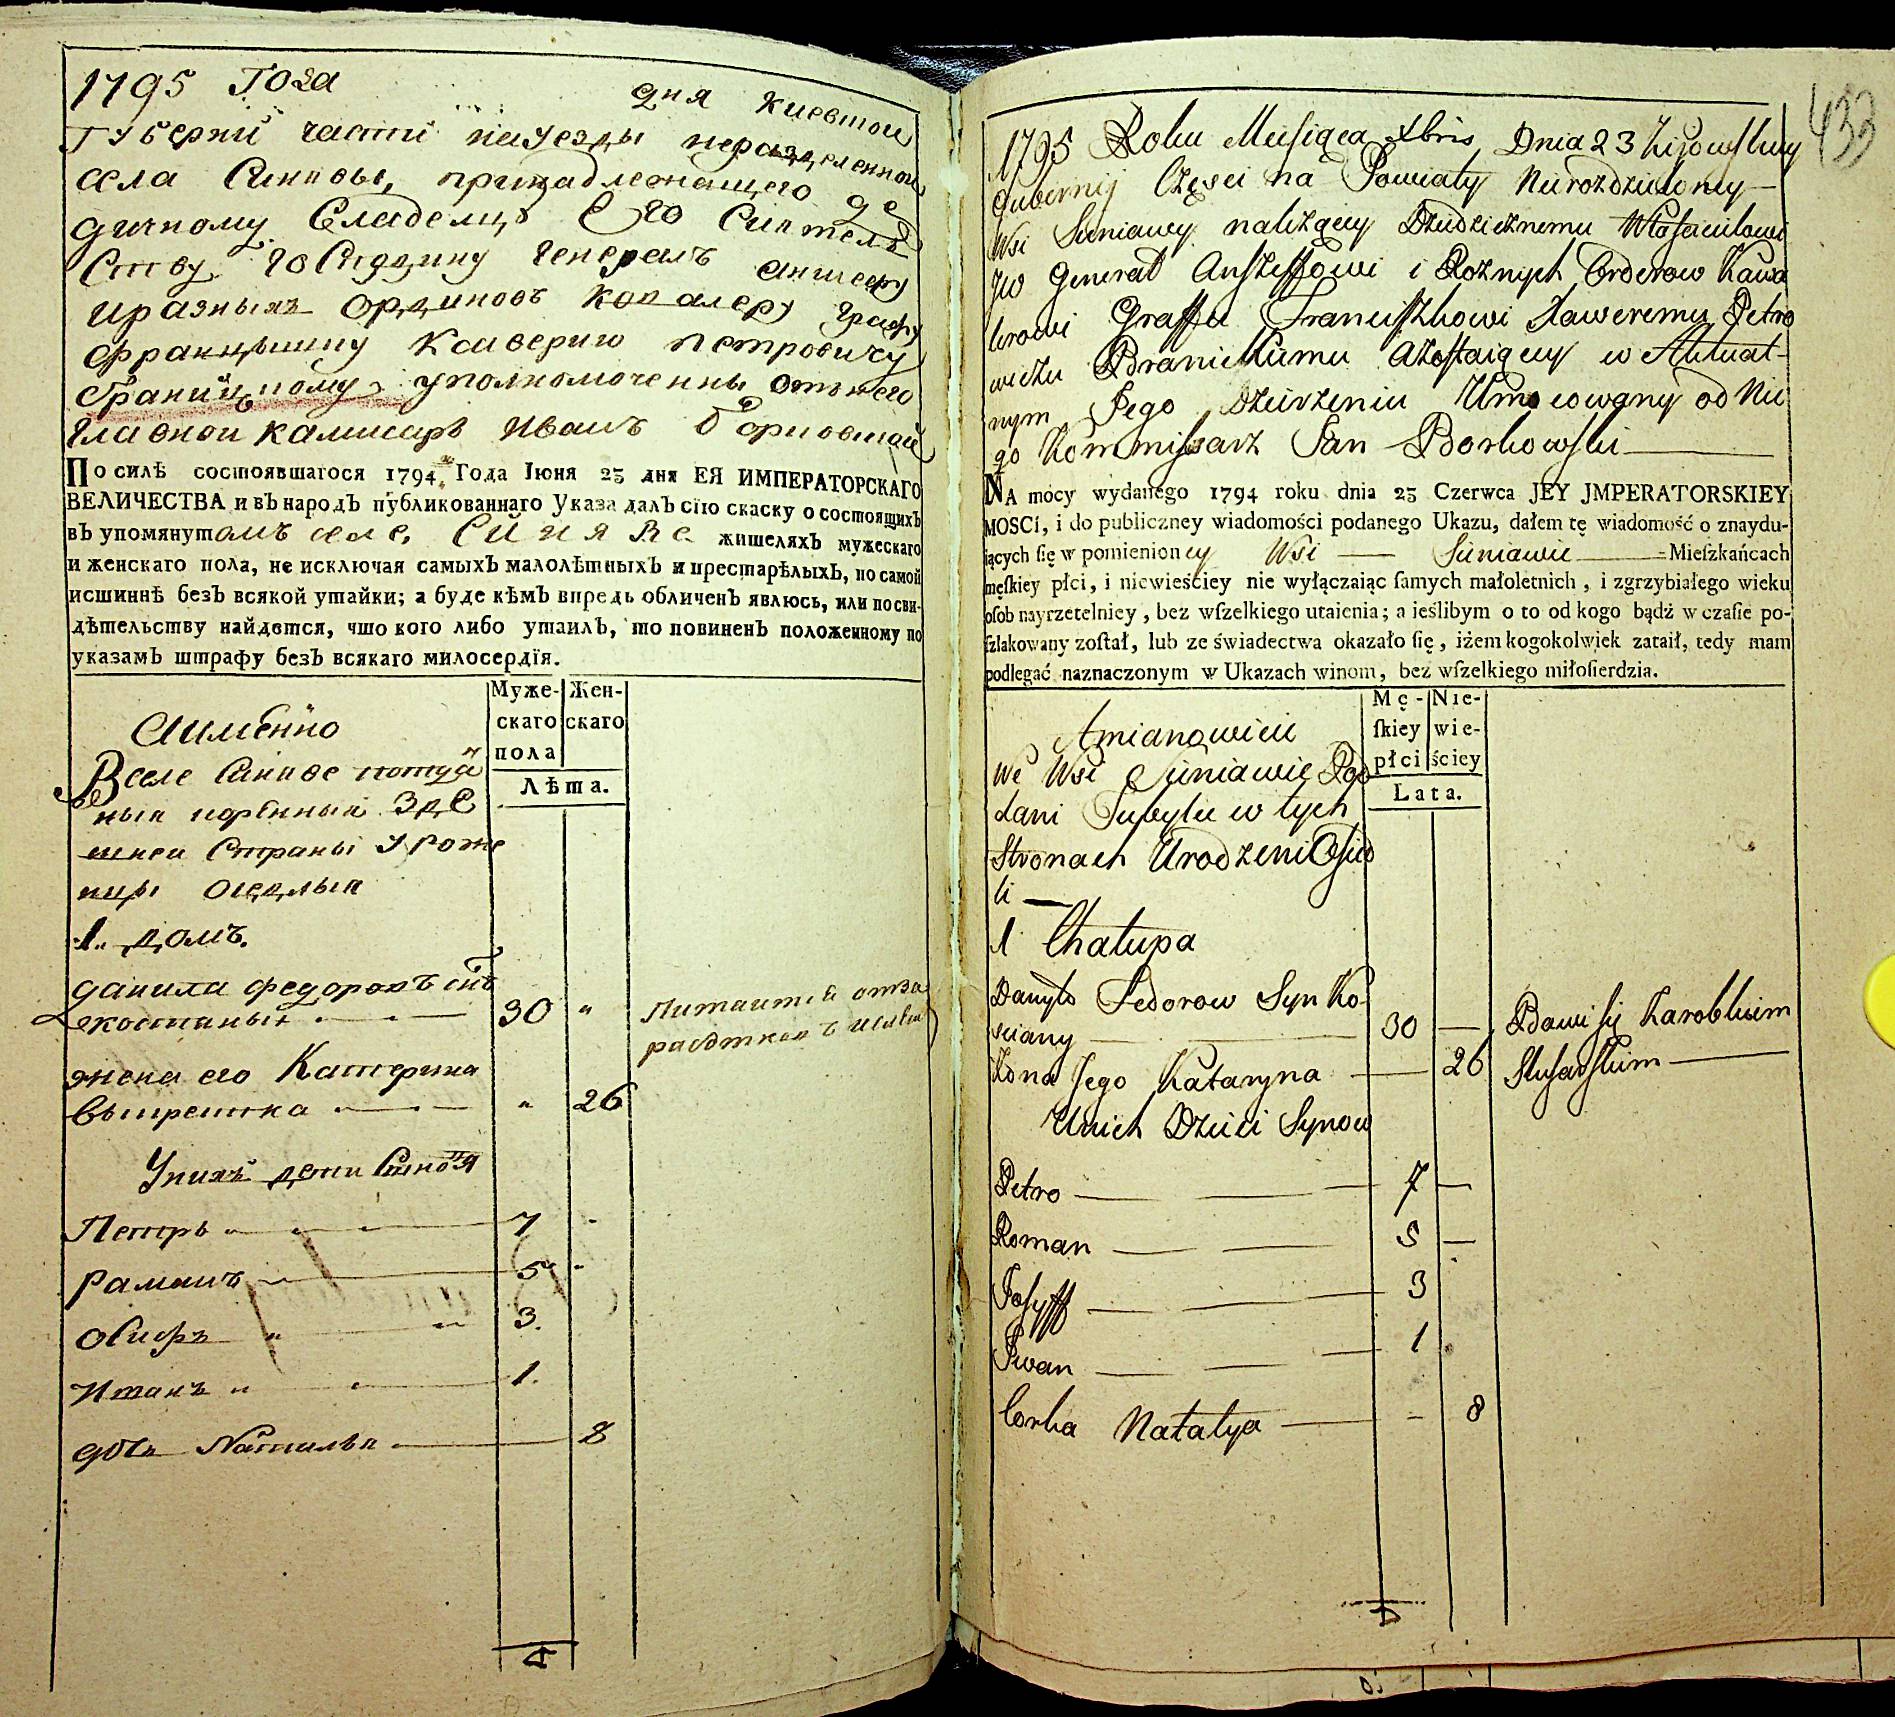 1795 Года дня Киевской
Губернӣ части науезды неразделенной
села Синявы, принадлежащего де
дичному Владелцу Его Сиятель
ству Господину Генералъ аншефу
и разныхъ ординовъ кавалеру Графу
Францышку Ксаверию Петровичу
Браницкому, уполномоченны отънего
Главнои камисаръ Иванъ Борковский
По силѣ состоявшагося 1794 Года Іюня 23 дня ЕЯ ИМПЕРАТОРСКАГО
ВЕЛИЧЕСТВА и въ народъ публикованнаго Указа далъ сію скаску о состоящихъ
въ упомянутомъ селе Синяве жителяхъ мужескаго
и женскаго пола, не исключая самыхъ малолѣтныхъ и престарѣлыхъ, по самой
истиннѣ безъ всякой утайки; а буде кѣмъ впредь обличенъ явлюсь, или по сви-
дѣтельству найдется, что кого либо утаилъ, то повиненъ положенному по
указамъ штрафу безъ всякаго милосердїя.
Муже- Жен-
скаго скаго
пола
Лѣта.
Аименно
Вселе Синяве
Зде
шней Страны уроже
нцы оседлыя
1. домъ.
данила федоровъ снъ
костяный 30 "
жена его Катерина
" 26
Унихъ дети
Петръ 7
раманъ 5
осифъ 3.
1.
дочь Наталья 8
4
433
1795 Roku Miesiąca Xbris Dnia 23 Kijowskiey
Gubernij Części na Powiaty Nierozdzieloney
Wsi Siniawey należącey Dziedzicznemu Włascicielowi
JW Generał Anszeffowi i Rożnych Orderow Kawa
lerowi Graffu Franciszkowi Xaweremu Petro
wiczu Branickiemu Azostaiącey w Aktual-
nym Jego Dzierżeniu Umocowany od Nie
go Kommissarz Jan Borkowski
NA mocy wydanego 1794 roku dnia 23 Czerwca JEY JMPERATORSKIEY
MOSCİ, i do publiczney wiadomości podanego Ukazu, dałem tę wiadomość o znaydu-
iących się w pomienioney Wsi Siniawie Mieſzkańcach
męſkiey płci, i niewieściey nie wyłączaiąc ſamych małoletnich, i zgrzybiałego wieku
oſob nayrzetelniey, bez wſzelkiego utaienia; a ieślibym o to od kogo bądź w czaſie po-
ſzlakowany zoſtał, lub ze świadectwa okazało ſię, iżem kogokolwiek zataił, tedy mam
podlegać naznaczonym w Ukazach winom, bez wſzelkiego miłoſierdzia.
Mę- Nie-
ſkiey wie-
płci ściey
Lata.
Amianowicie
We Wsi Siniawie Pod
dani w tych
Stronach Urodzeni Osied
li
1 Chałupa
Danyło Fedorow Syn Ko-
sciany 30 — Bawi się Zarobkiem
Żona Jego Kataryna — 26 Slusarskim
Unich Dzieci Synow
Petro 7 —
Roman 5 —
Josyff 3
Iwan 1
Corka Natalya - 8